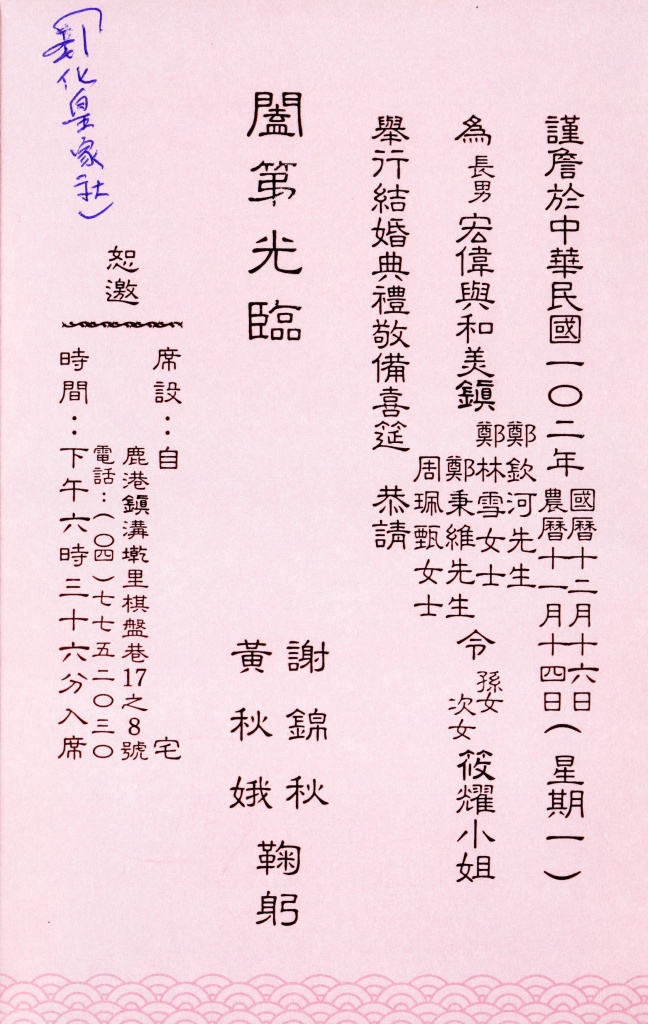 謹詹於中華民國一〇二年國曆十二月十六日農曆十一月十四日(星期一)
為長男宏偉與和美鎮鄭欽河先生
鄭林雪女士
鄭秉維先生
周珮甄女士
令孫女
次女
筱耀小姐
舉行結婚典禮敬備喜筵 恭請
闔第光臨
謝錦秋
黃秋娥
鞠躬
恕邀
席設:自宅
鹿港鎮溝墘里棋盤巷17之8號
電話:(〇四)七七五二〇三〇
時間:下午六時三十六分入席
(彰化皇家社)